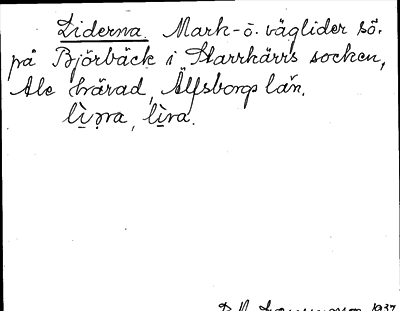 Liderna. Mark- o. väglider sö.
på Björbäck i Starrkärrs socken,
Ale härad, Älfsborgs län.
1937